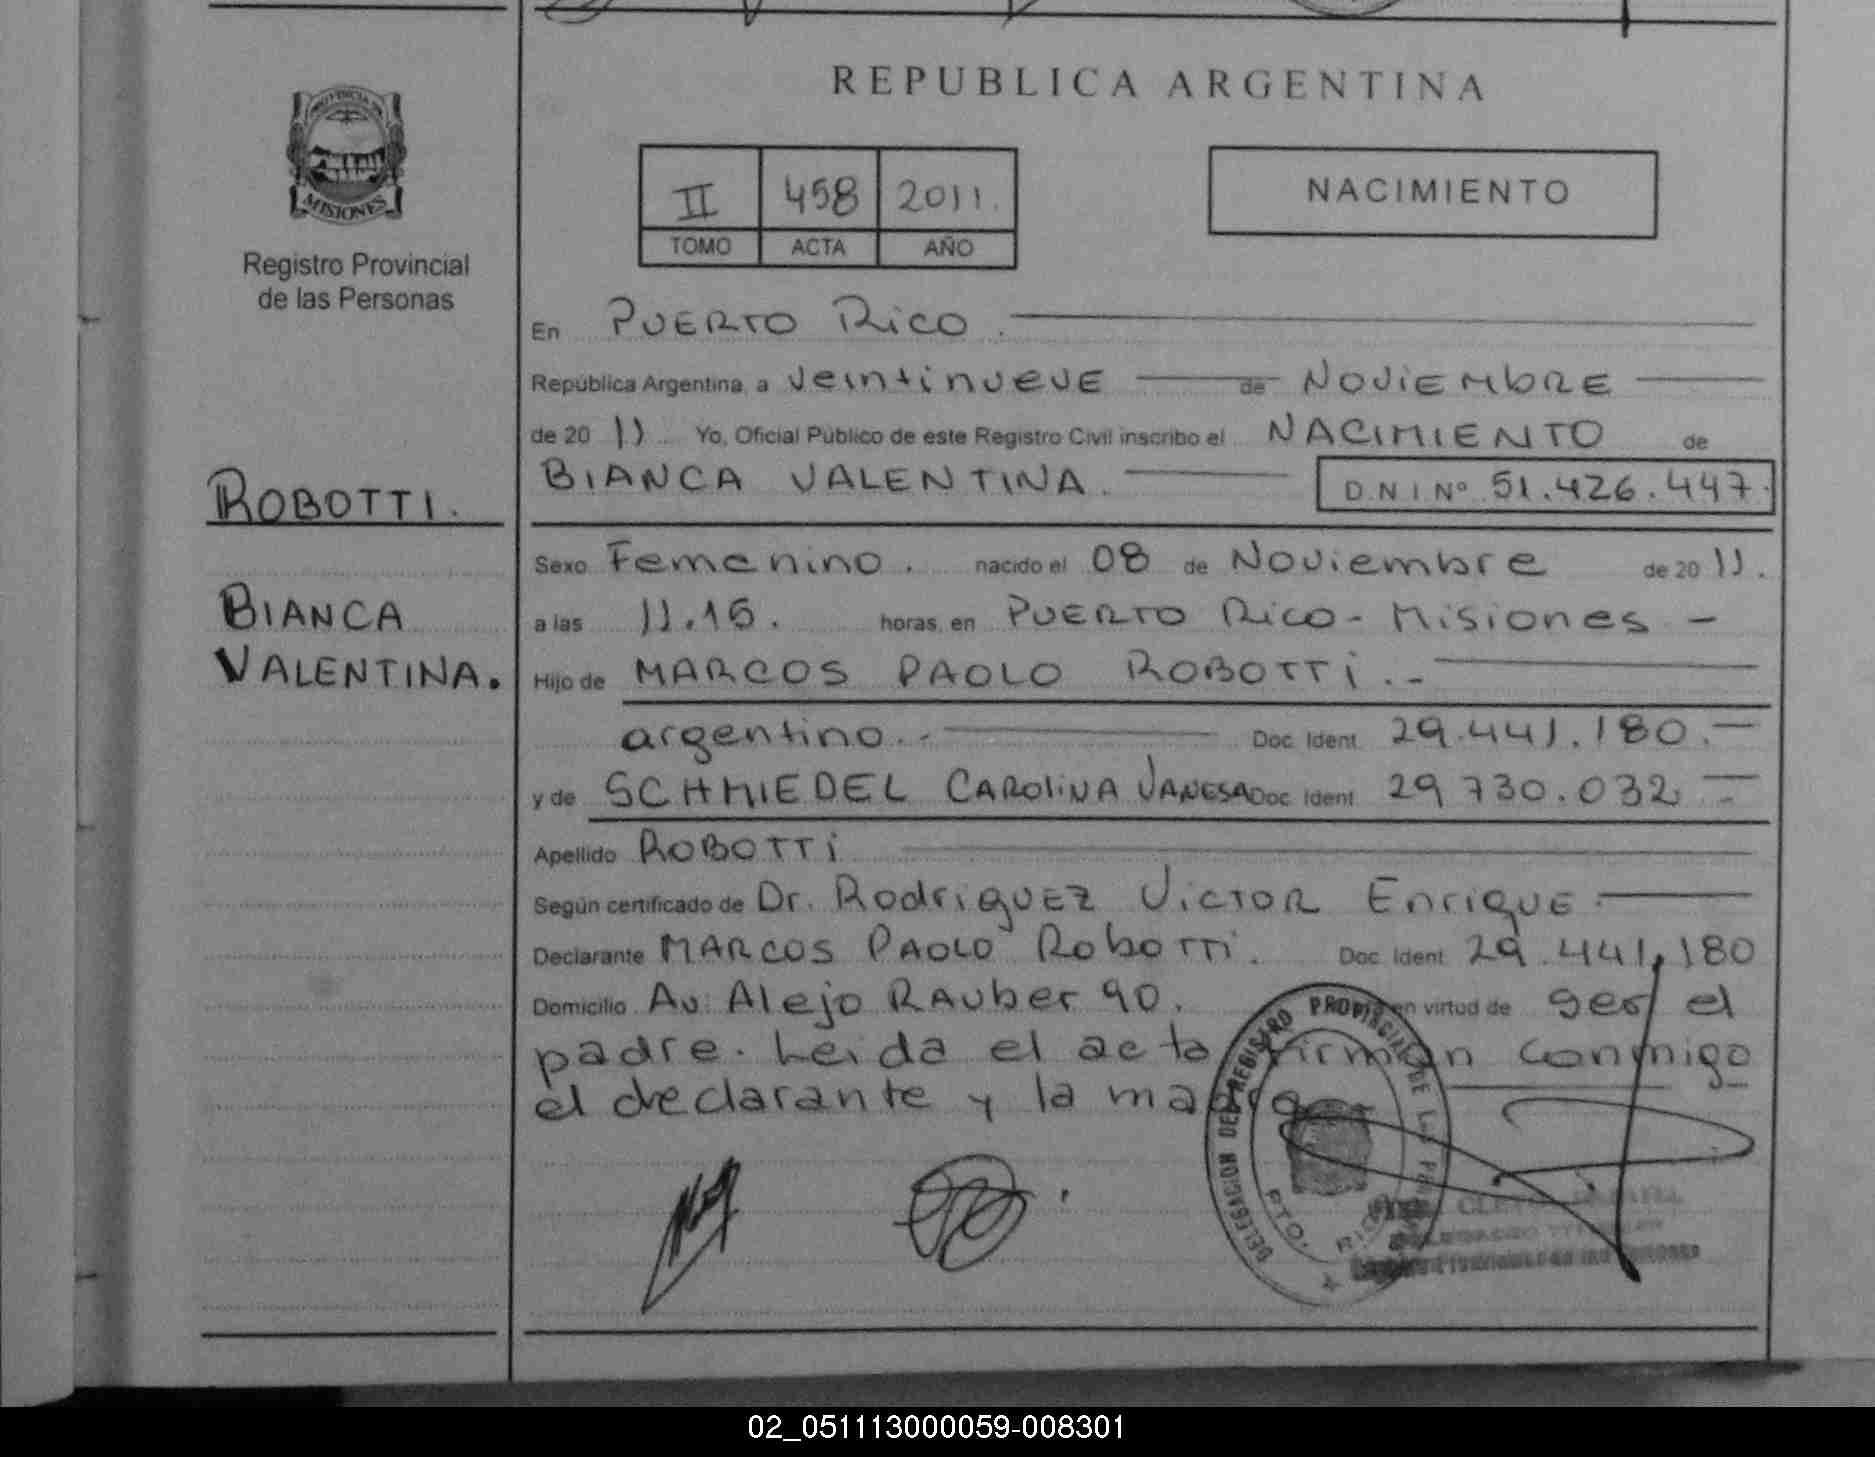 REPUBLICA ARGENTINA
PROVINCIA DE
MISIONES
Registro Provincial
de las Personas
II 458 2011.
TOMO ACTA AÑO
NACIMIENTO
En PUERTO RICO.
República Argentina, a veintinueve de NOVIEMBRE
de 2011 Yo, Oficial Público de este Registro Civil inscribo el NACIMIENTO de
BIANCA VALENTINA. D.N.I Nº 51.426.447.
ROBOTTI.
BIANCA
VALENTINA.
Sexo Femenino. nacido el 08 de Noviembre de 2011.
a las 11.15. horas, en PUERTO RICO - Misiones -
Hijo de MARCOS PAOLO ROBOTTI.-
argentino.- Doc. Ident. 29.441.180.-
y de SCHMIEDEL CAROLINA VANESA Doc. Ident. 29 730.032.-
Apellido ROBOTTI
Según certificado de Dr. Rodriguez Victor Enrique.
Declarante MARCOS PAOLO ROBOTTI. Doc. Ident. 29.441.180
Domicilio Av. Alejo Rauber 90. en virtud de ser el
padre. Leida el acta firman conmigo
el declarante y la madre
DELEGACION DEL REGISTRO PROVINCIAL DE LAS
PTO. RICO
02_051113000059-008301